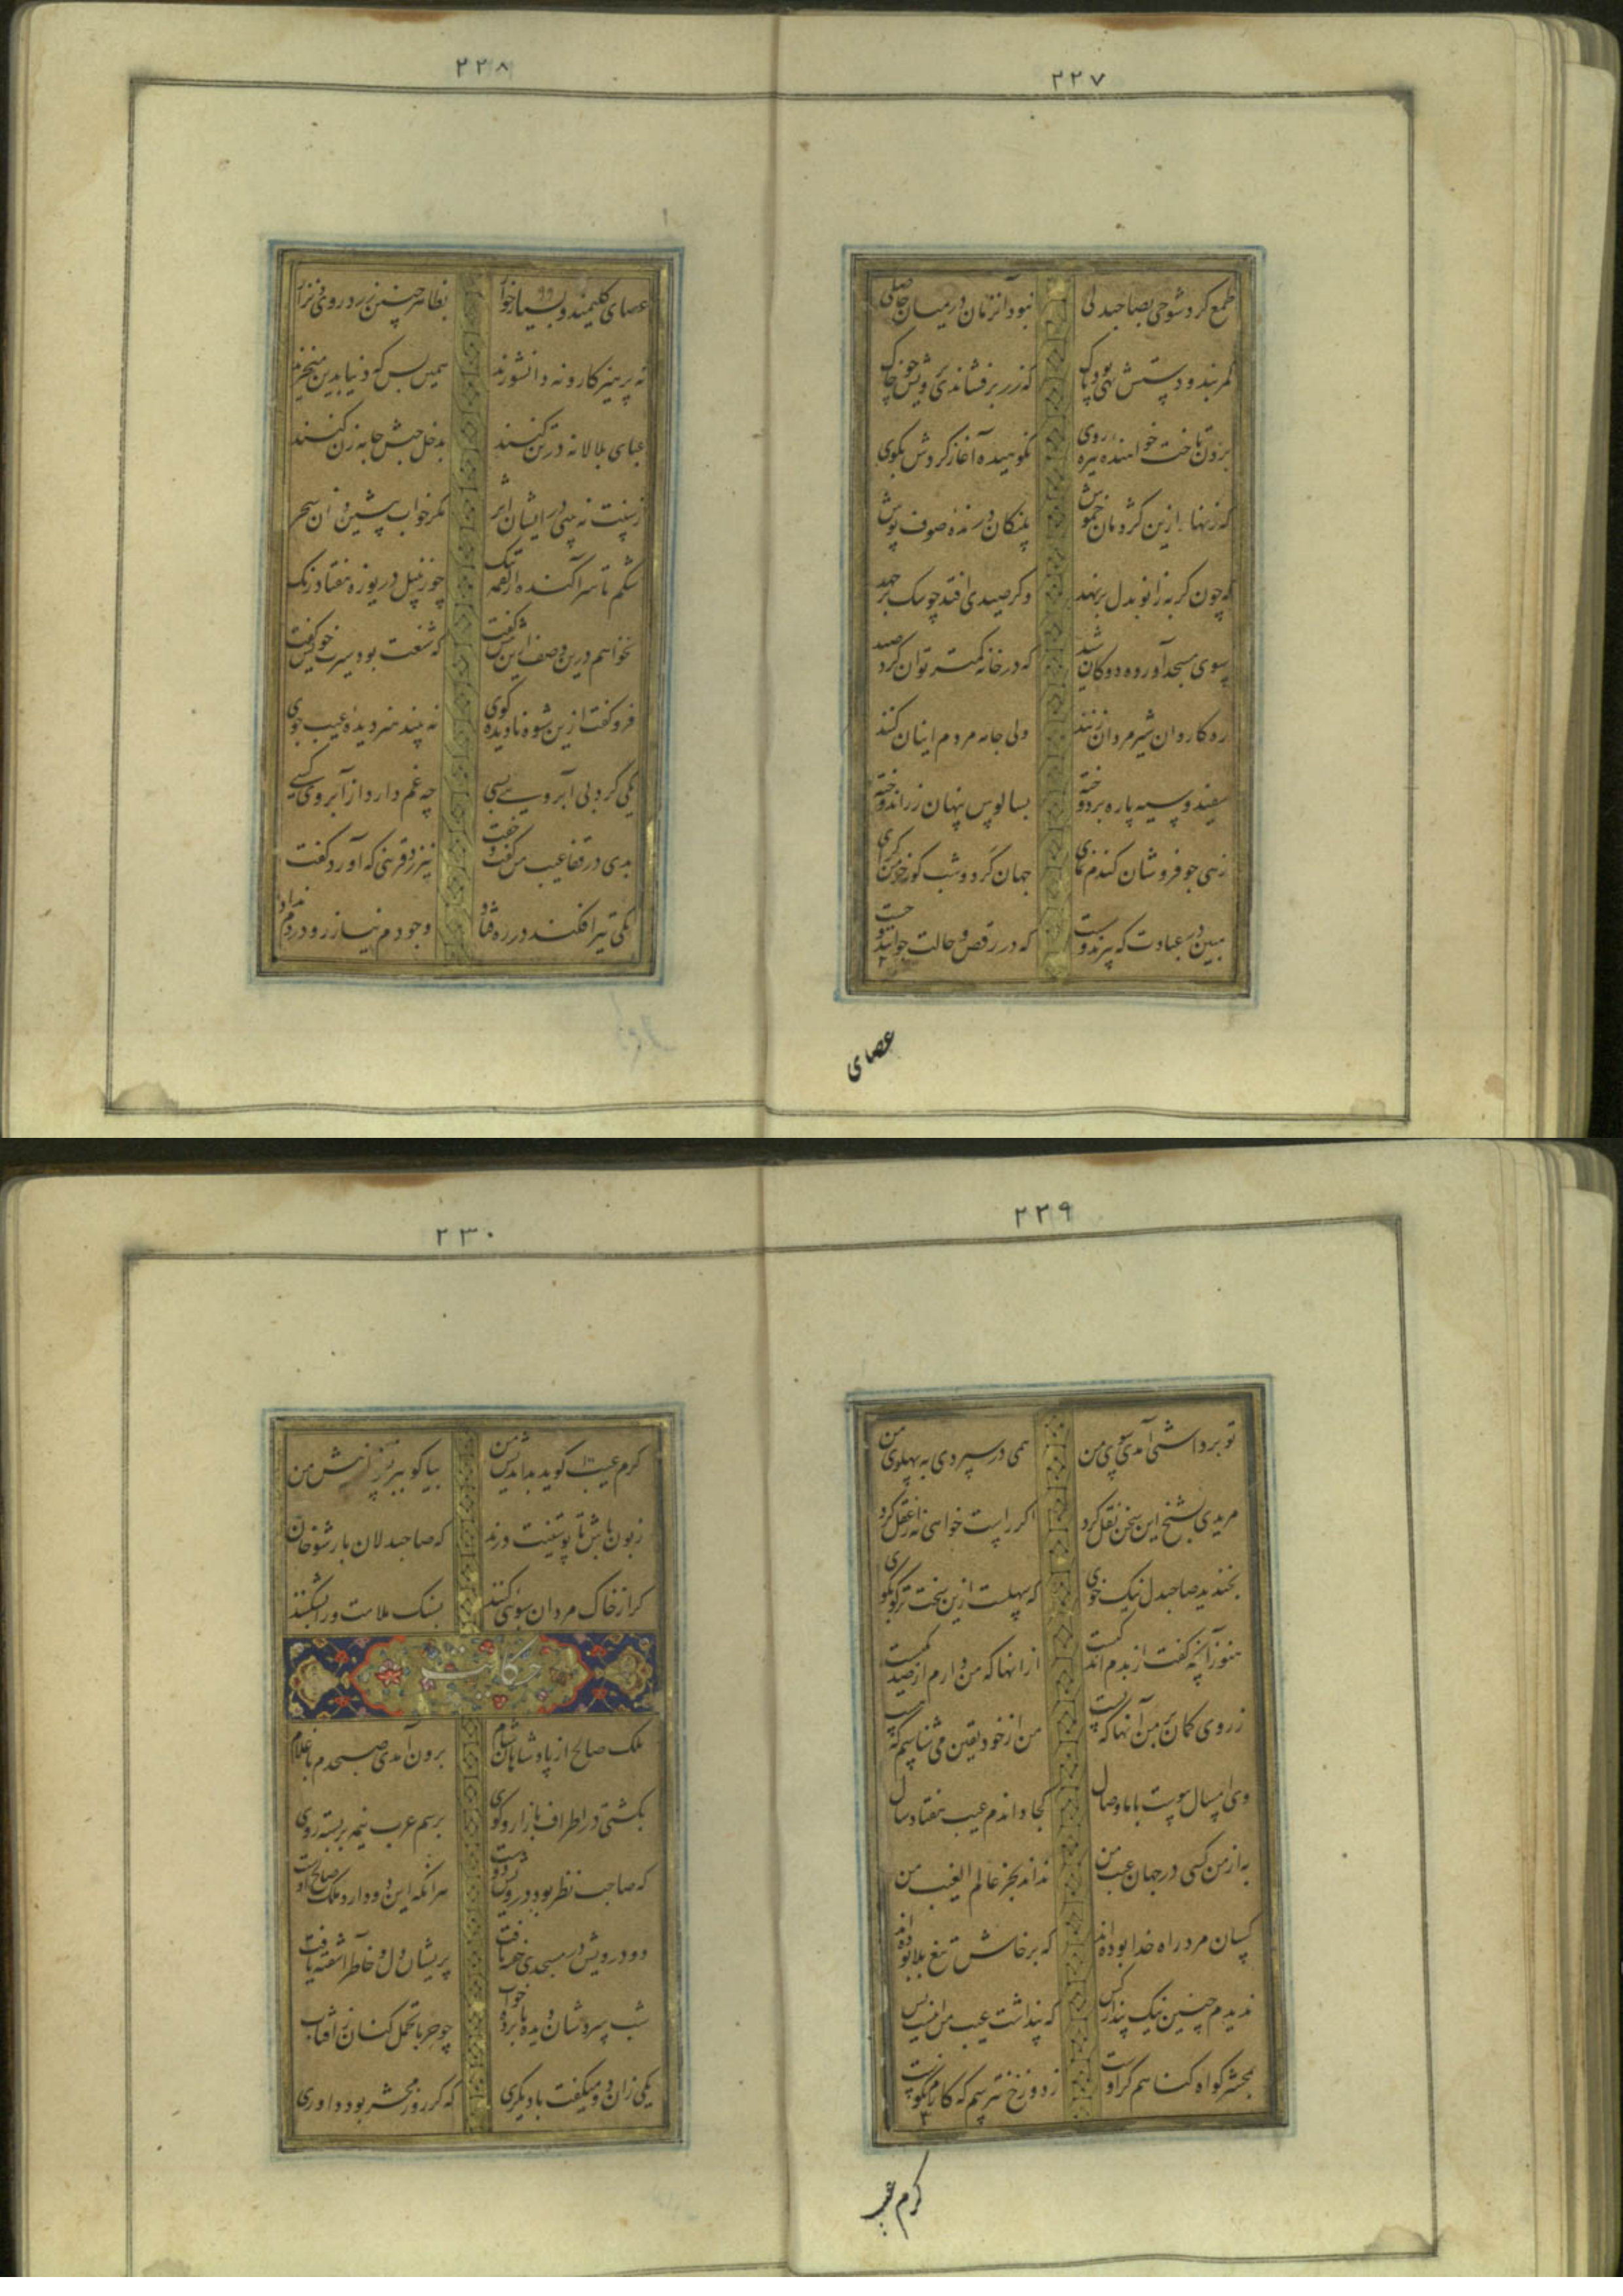 ۲۲۷
طمع کرد شوخی بصاحبدلی نبود آنزمان در میان حاصلی
کمربند و دستش تهی بود و پاک که زر برفشاندی برویش چو خاک
برون تاخت خواهنده خیره روی نکوهیدن آغاز کردش بکوی
که زنهار ازین کژدمان خموش پلنکان درنده صوف پوش
که چون کربه زانو بدل برنهند وکر صیدی افتد چو سک برجهند
سوی مسجد آورده دوکان شید که در خانه کمتر توان کرد صید
ره کاروان شیرمردان زنند ولی جامه مردم اینان کنند
سفید و سیه پاره بردوخته بسالوس پنهان زر اندوخته
زهی جو فروشان کندم نمای جهان کرد و شب کوز خرمن کرای
مبین در عبادت که پیرند و سست که در رقص و حالت جوانند و چست
عصای
۲۲۸
عصای کلیمند و بسیار خوار بظاهر چنین زرد روی و نزار
نه پرهیزکار و نه دانشورند همین بس که دنیا بدین میخرند
عبای بلالانه در تن کنند بدخل حبش جامه زن کنند
ز سنت نه بینی در ایشان اثر مکر خواب پیشین و نان سحر
شکم تا سر آکنده از لقمه تنک چو زنبیل دریوزه هفتاد رنک
نخواهم درین وصف ازین بیش کفت که شنعت بود سیرت خویش کفت
فرو کفت ازین شیوه نادیده کوی نه بیند هنر دیده عیب جوی
یکی کرده بی آبرویی بسی چه غم دارد از آبروی کسی
بدی در قفا عیب من کفت و خفت بتر زو قرینی که آورد کفت
یکی تیر افکند و در ره فتاد وجودم نیازرد و رنجم نداد
۲۲۹
تو برداشتی آمدی سوی من همی درسپردی به پهلوی من
مریدی بشیخ این سخن نقل کرد اکر راست خواهی نه از عقل کرد
بخندید صاحبدل نیک خوی که سهلست ازین سخت تر کو بکوی
هنوز آنچه کفت از بدم اندکیست از آنها که من دارم از صد یکیست
ز روی کمان بر من آنها که بست من از خود یقین می شناسم که هست
وی امسال پیوست با ما وصال کجا داندم عیب هفتاد سال
به از من کسی در جهان عیب من نداند بجز عالم الغیب من
کسان مرد راه خدا بوده اند که برخاش تیغ بلا بوده اند
ندیدم چنین نیک پندار کس که پنداشت عیب من اینست و بس
بمحشر کواه کناهم کر اوست ز دوزخ نترسم که کارم نکوست
کرم عیب
۲۳۰
کرم عیب کوید بداندیش من بیا کو ببر نسخه از پیش من
زبون باش تا پوستینت درند که صاحبدلان بار شوخان
کر از خاک مردان سبوئی کنند بسنک ملامت ورا بشکنند
حکایت
ملک صالح از پادشاهان شام برون آمدی صبحدم با غلام
بکشتی در اطراف بازار و کوی برسم عرب نیمه بربسته روی
که صاحب نظر بود و درویش دوست هر آنکه این دو دارد ملک صالح اوست
دو درویش در مسجدی خفته یافت پریشان دل و خاطر آشفته یافت
شب سردشان دیده نابرده خواب چو حربا تحمل کنان ز آفتاب
یکی زان دو میکفت با دیکری که کر روز محشر بود داوری